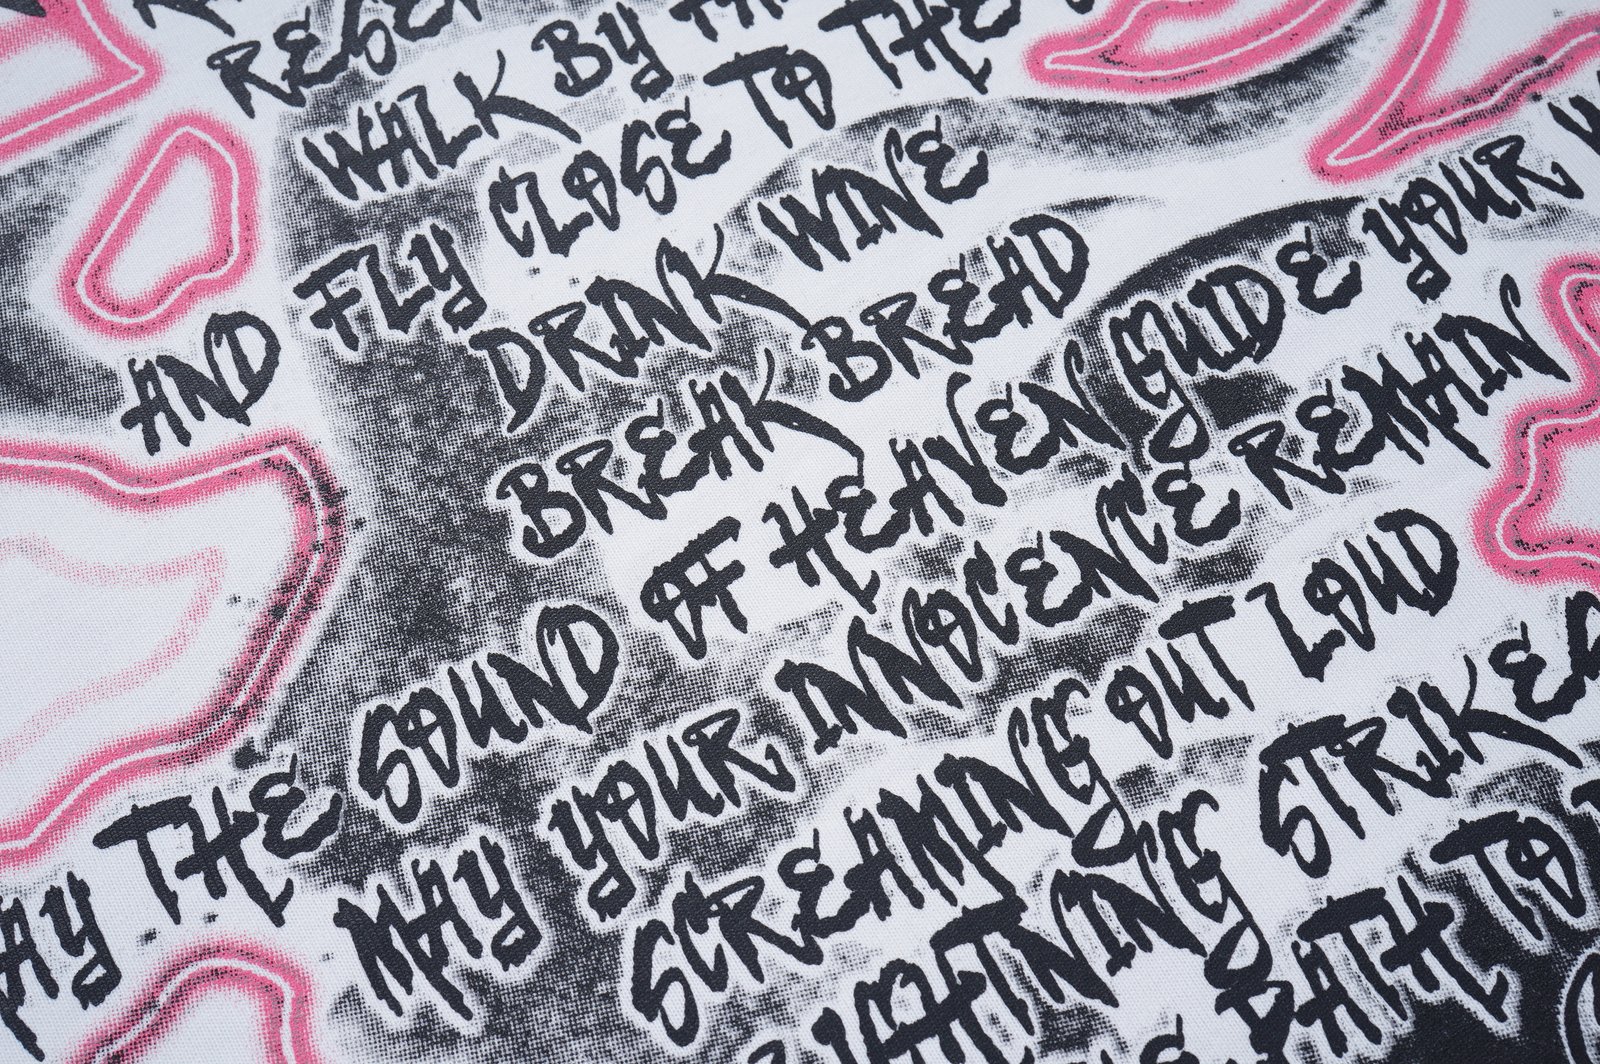 WALK BY
AND FLY CLOSE TO THE
DRINK WINE
BREAK BREAD
THE SOUND OF HEAVEN GUIDE YOUR
MAY YOUR INNOCENCE REMAIN
SCREAMING OUT LOUD
STRIKES
PATH TO